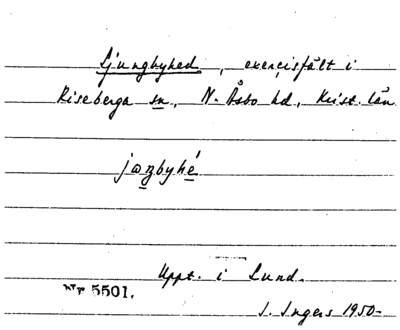 Ljungbyhed, exercisfält i
Riseberga sn, N. Åsbo hd, Krist. län
Uppt. i Lund.
Nr 5501.
I. Ingers 1950-